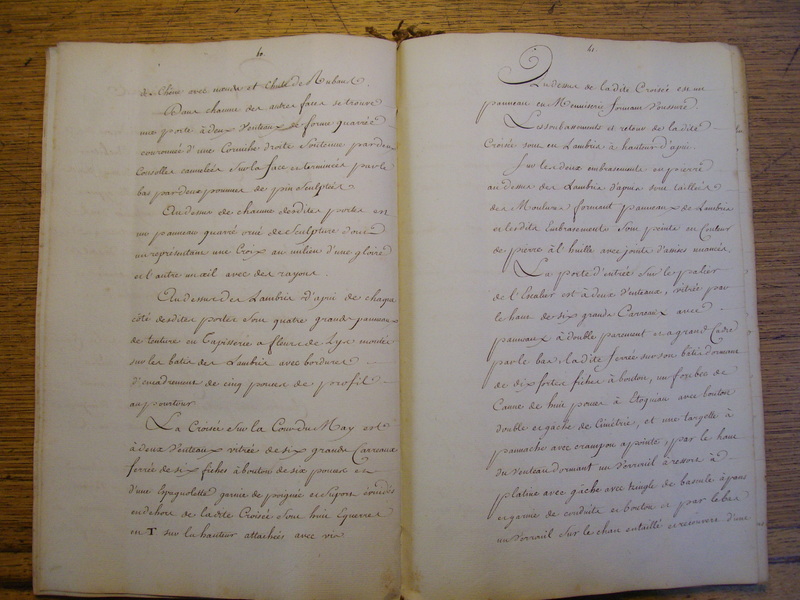 60.
de Chêne avec nœuds et Chute de Rubans.
Dans chacune des autres faces se trouve
une porte à deux Venteaux de forme quarrée
couronnée d'une Corniche droite soutenue par deux
Consolles cannelées sur la face et terminées par le
bas par deux pommes de pin sculptées
Au dessus de chacune desdites portes est
un panneau quarré orné de sculpture dont
un représentant une Croix au milieu d'une gloire
et l'autre un œil avec des rayons.
Au dessus des Lambris d'apui de chaque
côté desdites portes sont quatre grands panneaux
de tenture en Tapisserie a fleurs de Lys montée
sur les batis des Lambris avec bordures
d'encadrement de cinq pouces de profil
au pourtour
La Croisée sur la Cour du May est
à deux Venteaux vitrée de six grands Carreaux
ferrée de six fiches à boutons de six pouces et
d'une Espagnolette garnie de poignée et suport
en dehors de ladite Croisée sont huit Equerres
en T sur la hauteur attachées avec vis
61.
Au dessus de ladite Croisée est un
panneau en Menuiserie formant Voussure.
Les soubassements et retour de ladite
Croisée sont en Lambris à hauteur d'apui.
Sur les deux embrasements en pierre
au dessus des Lambris d'apuis sont taillées
des Moulures formant panneaux de Lambris
et lesdits Embrasements sont peints en Couleur
de pierre à l'huille avec joints d'assises nuancés.
La porte d'entrée sur le palier
de l'Escalier est à deux Venteaux, vitrée par
le haut de six grands Carreaux avec
panneaux à double parement et a grand Cadre
par le bas, ladite ferrée sur son bâtis dormant
de dix fortes fiches à bouton, un
Canne de huit pouces à avec bouton
double et gache de , et une targette à
pannache avec crampon a pointe, par le haut
du Venteau dormant un Verrouil à ressort à
platine avec gâche avec tringle de bascule à
et garnie de conduits et bouton et par le bas
un Verrouil sur le chan entaillé et recouvert d'une